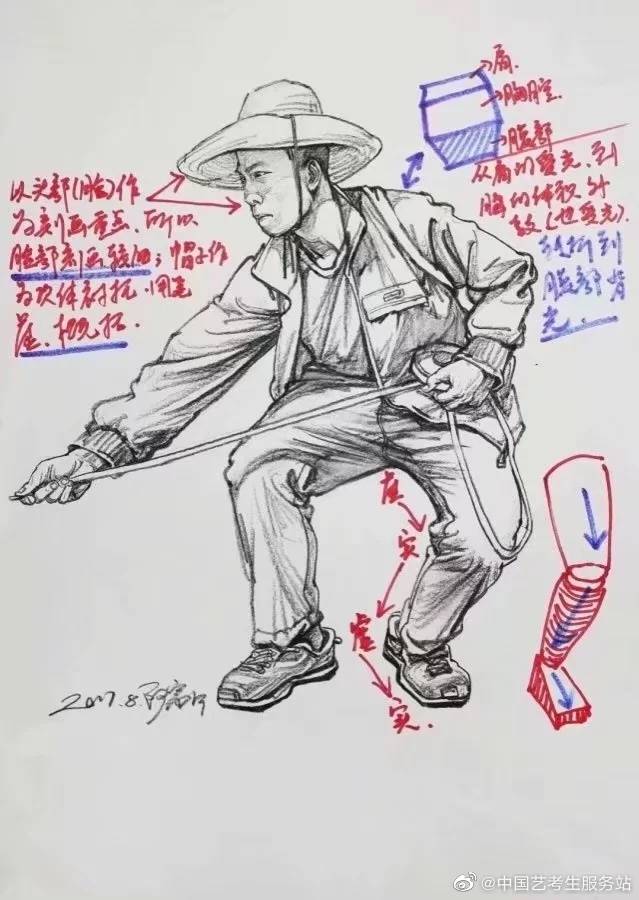 以头部(脸)作
为刻画重点.所以
脸部刻画较细;帽子作
为次体衬托.用笔
虚.概括.
肩.
胸腔.
腹部
从肩的受光.到
胸的体积外
(也受光).
转折到
腹部背
光.
虚
实
虚
实.
2017.8.
@中国艺考生服务站